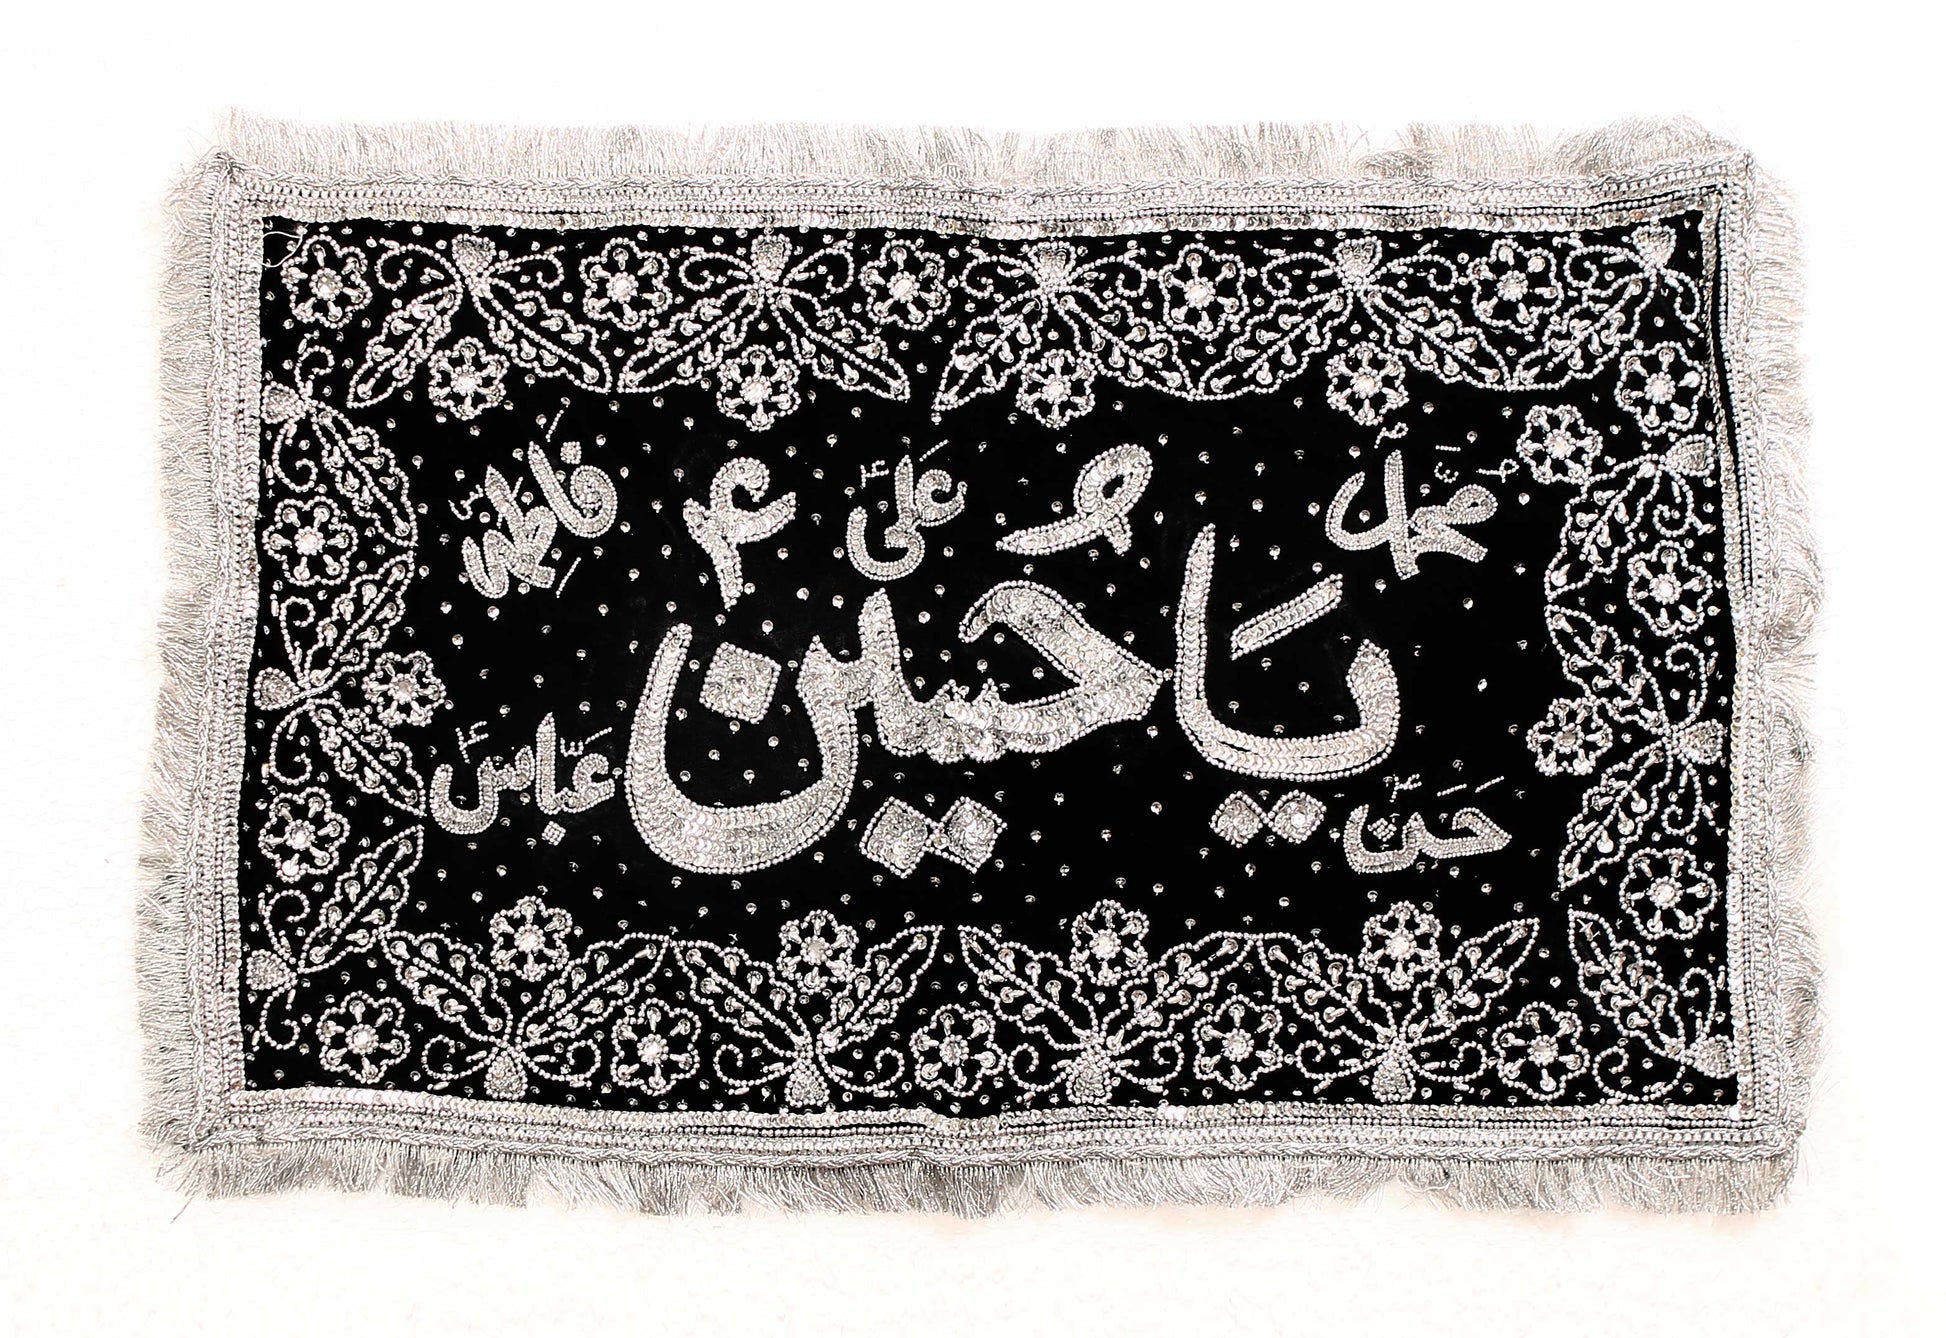 محمد علی فاطمہ
یا حسین
حسن عباس